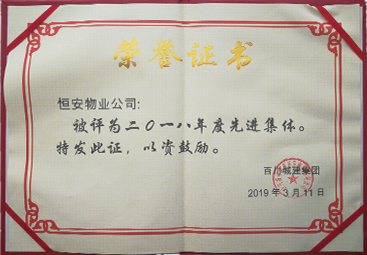 荣誉证书
恒安物业公司:
被评为二〇一八年度先进集体。
特发此证,以资鼓励。
百川城建集团
2019年3月11日